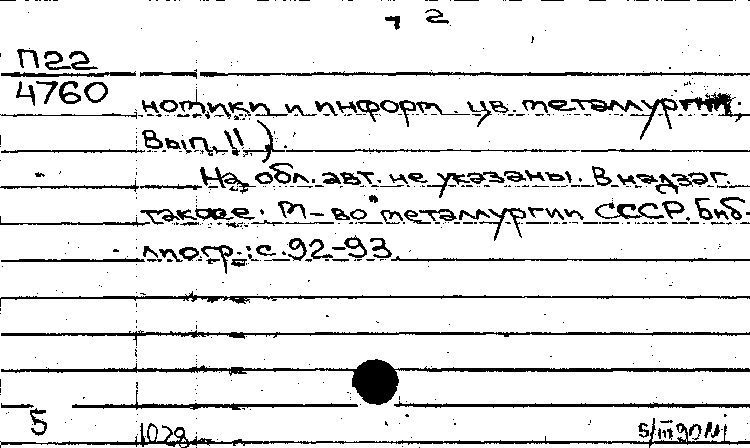 2
П22
4760
номики и информ. цв. металлургии;
Вып. 11).
На обл. авт. не указаны. В надзаг.
также: М-во металлургии СССР. Биб-
лиогр.: с. 92-93.
5
1028
5/III 90